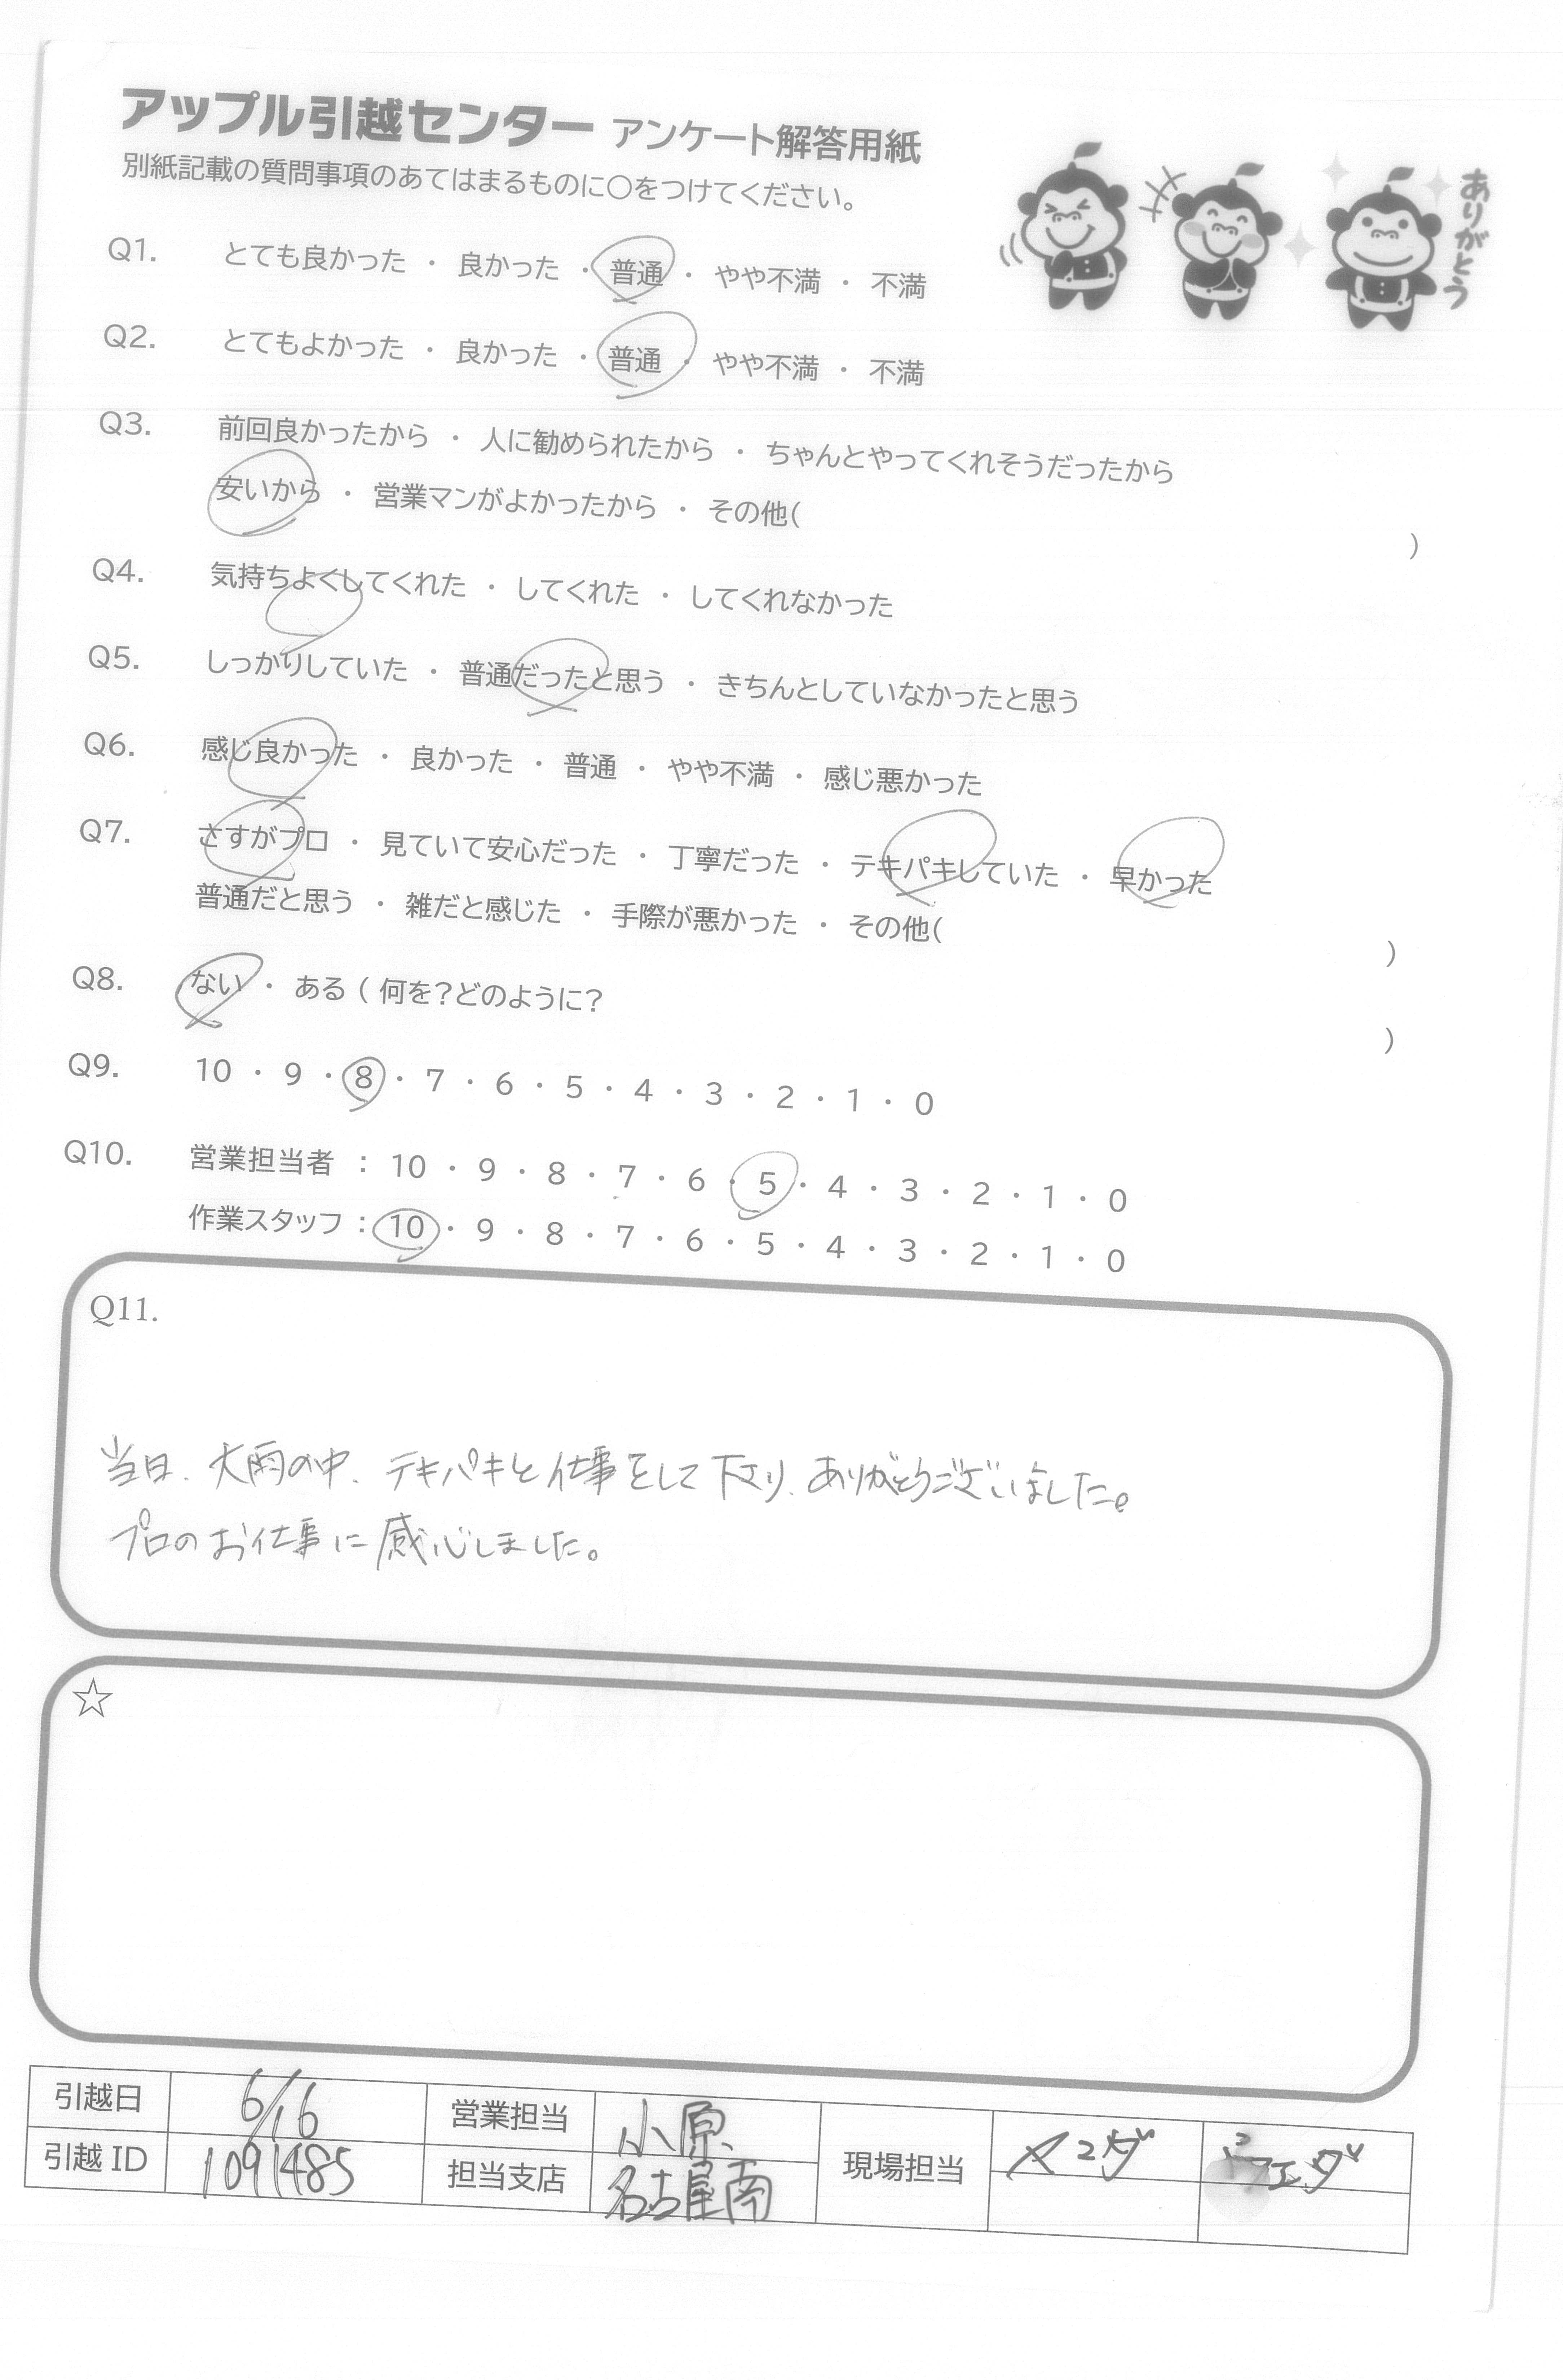 アップル引越センター アンケート解答用紙
別紙記載の質問事項のあてはまるものに○をつけてください。
ありがとう
Q1. とても良かった ・ 良かった ・ 普通 ・ やや不満 ・ 不満
Q2. とてもよかった ・ 良かった ・ 普通 ・ やや不満 ・ 不満
Q3. 前回良かったから ・ 人に勧められたから ・ ちゃんとやってくれそうだったから
安いから ・ 営業マンがよかったから ・ その他( )
Q4. 気持ちよくしてくれた ・ してくれた ・ してくれなかった
Q5. しっかりしていた ・ 普通だったと思う ・ きちんとしていなかったと思う
Q6. 感じ良かった ・ 良かった ・ 普通 ・ やや不満 ・ 感じ悪かった
Q7. さすがプロ ・ 見ていて安心だった ・ 丁寧だった ・ テキパキしていた ・ 早かった
普通だと思う ・ 雑だと感じた ・ 手際が悪かった ・ その他( )
Q8. ない ・ ある ( 何を?どのように? )
Q9. 10 ・ 9 ・ 8 ・ 7 ・ 6 ・ 5 ・ 4 ・ 3 ・ 2 ・ 1 ・ 0
Q10. 営業担当者 : 10 ・ 9 ・ 8 ・ 7 ・ 6 ・ 5 ・ 4 ・ 3 ・ 2 ・ 1 ・ 0
作業スタッフ : 10 ・ 9 ・ 8 ・ 7 ・ 6 ・ 5 ・ 4 ・ 3 ・ 2 ・ 1 ・ 0
Q11.
当日、大雨の中、テキパキと仕事をして下さり、ありがとうございました。
プロのお仕事に感心しました。
☆
引越日 6/16 営業担当 小原
引越 ID 1091485 担当支店 名古屋南 現場担当